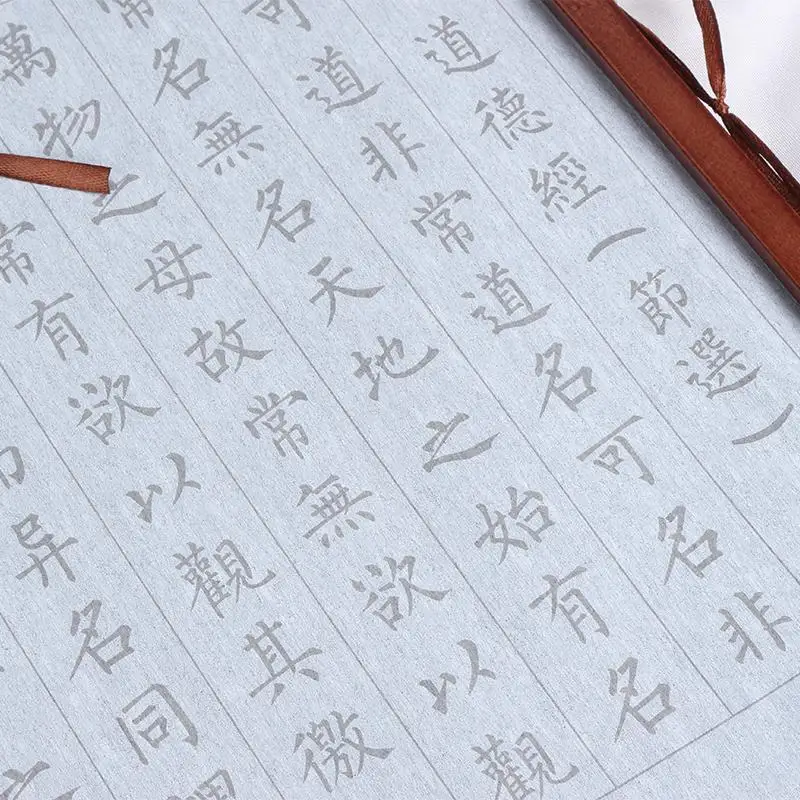 道德經︵節選︶
可道非常道名可名非
常名無名天地之始有名
萬物之母故常無欲以觀
常有欲以觀其徼
异名同